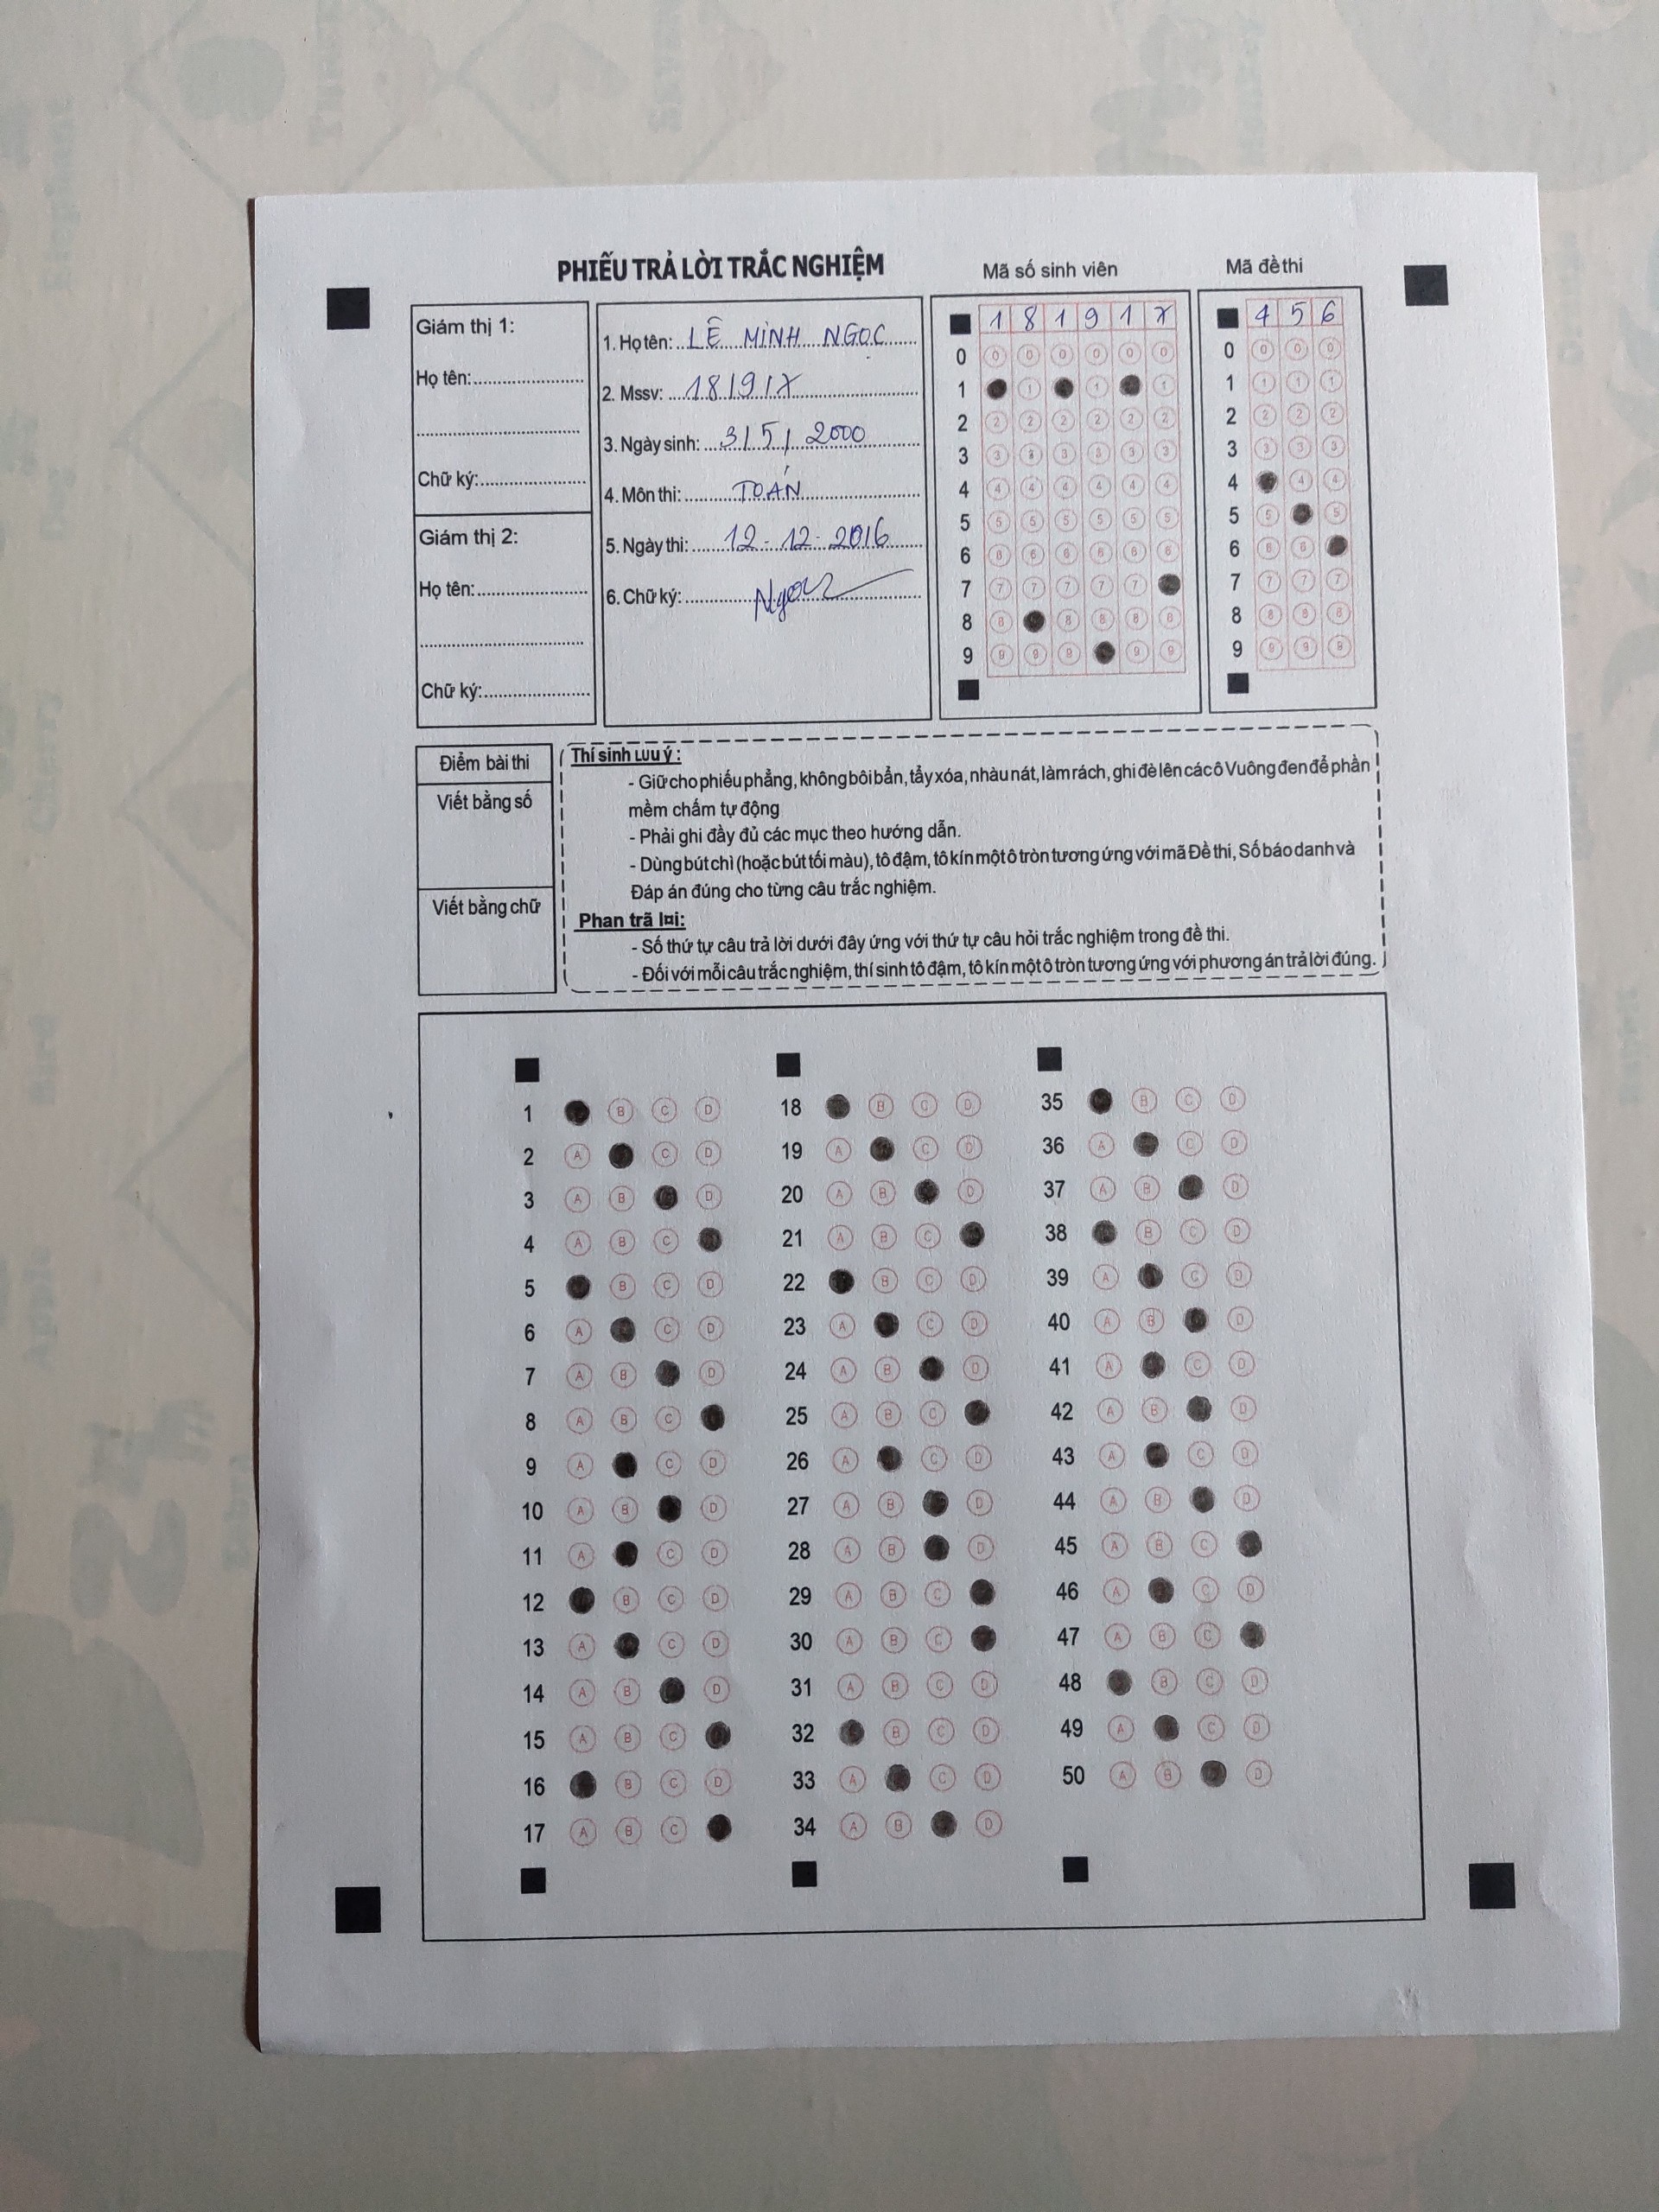 PHIẾU TRẢ LỜI TRẮC NGHIỆM
Mã số sinh viên
Mã đề thi
Giám thị 1:
Họ tên:
Chữ ký:
Giám thị 2:
Họ tên:
Chữ ký:
1. Họ tên: LÊ MINH NGỌC
2. Mssv: 181917
3. Ngày sinh: 31512000
4. Môn thi: TOÁN
5. Ngày thi: 12-12-2016
6. Chữ ký: Ngọc
1 8 1 9 1 7
0 0 0 0 0 0 0
1 1 1 1
2 2 2 2 2 2 2
3 3 3 3 3 3 3
4 4 4 4 4 4 4
5 5 5 5 5 5 5
6 6 6 6 6 6 6
7 7 7 7 7 7
8 8 8 8 8 8
9 9 9 9 9 9
4 5 6
0 0 0 0
1 1 1 1
2 2 2 2
3 3 3 3
4 4 4
5 5 5
6 6 6
7 7 7 7
8 8 8 8
9 9 9 9
Điểm bài thi
Viết bằng số
Viết bằng chữ
Thí sinh LƯU ý :
- Giữ cho phiếu phẳng, không bôi bẩn, tẩy xóa, nhàu nát, làm rách, ghi đè lên các ô Vuông đen để phần
mềm chấm tự động
- Phải ghi đầy đủ các mục theo hướng dẫn.
- Dùng bút chì (hoặc bút tối màu), tô đậm, tô kín một ô tròn tương ứng với mã Đề thi, Số báo danh và
Đáp án đúng cho từng câu trắc nghiệm.
Phan trã l¤i:
- Số thứ tự câu trả lời dưới đây ứng với thứ tự câu hỏi trắc nghiệm trong đề thi.
- Đối với mỗi câu trắc nghiệm, thí sinh tô đậm, tô kín một ô tròn tương ứng với phương án trả lời đúng.
1 B C D
2 A C D
3 A B D
4 A B C
5 B C D
6 A C D
7 A B D
8 A B C
9 A C D
10 A B D
11 A C D
12 B C D
13 A C D
14 A B D
15 A B C
16 B C D
17 A B C
18 B C D
19 A C D
20 A B D
21 A B C
22 B C D
23 A C D
24 A B D
25 A B C
26 A C D
27 A B D
28 A B D
29 A B C
30 A B C
31 A B C D
32 B C D
33 A C D
34 A B D
35 B C D
36 A C D
37 A B D
38 B C D
39 A C D
40 A B D
41 A C D
42 A B D
43 A C D
44 A B D
45 A B C
46 A C D
47 A B C
48 B C D
49 A C D
50 A B D